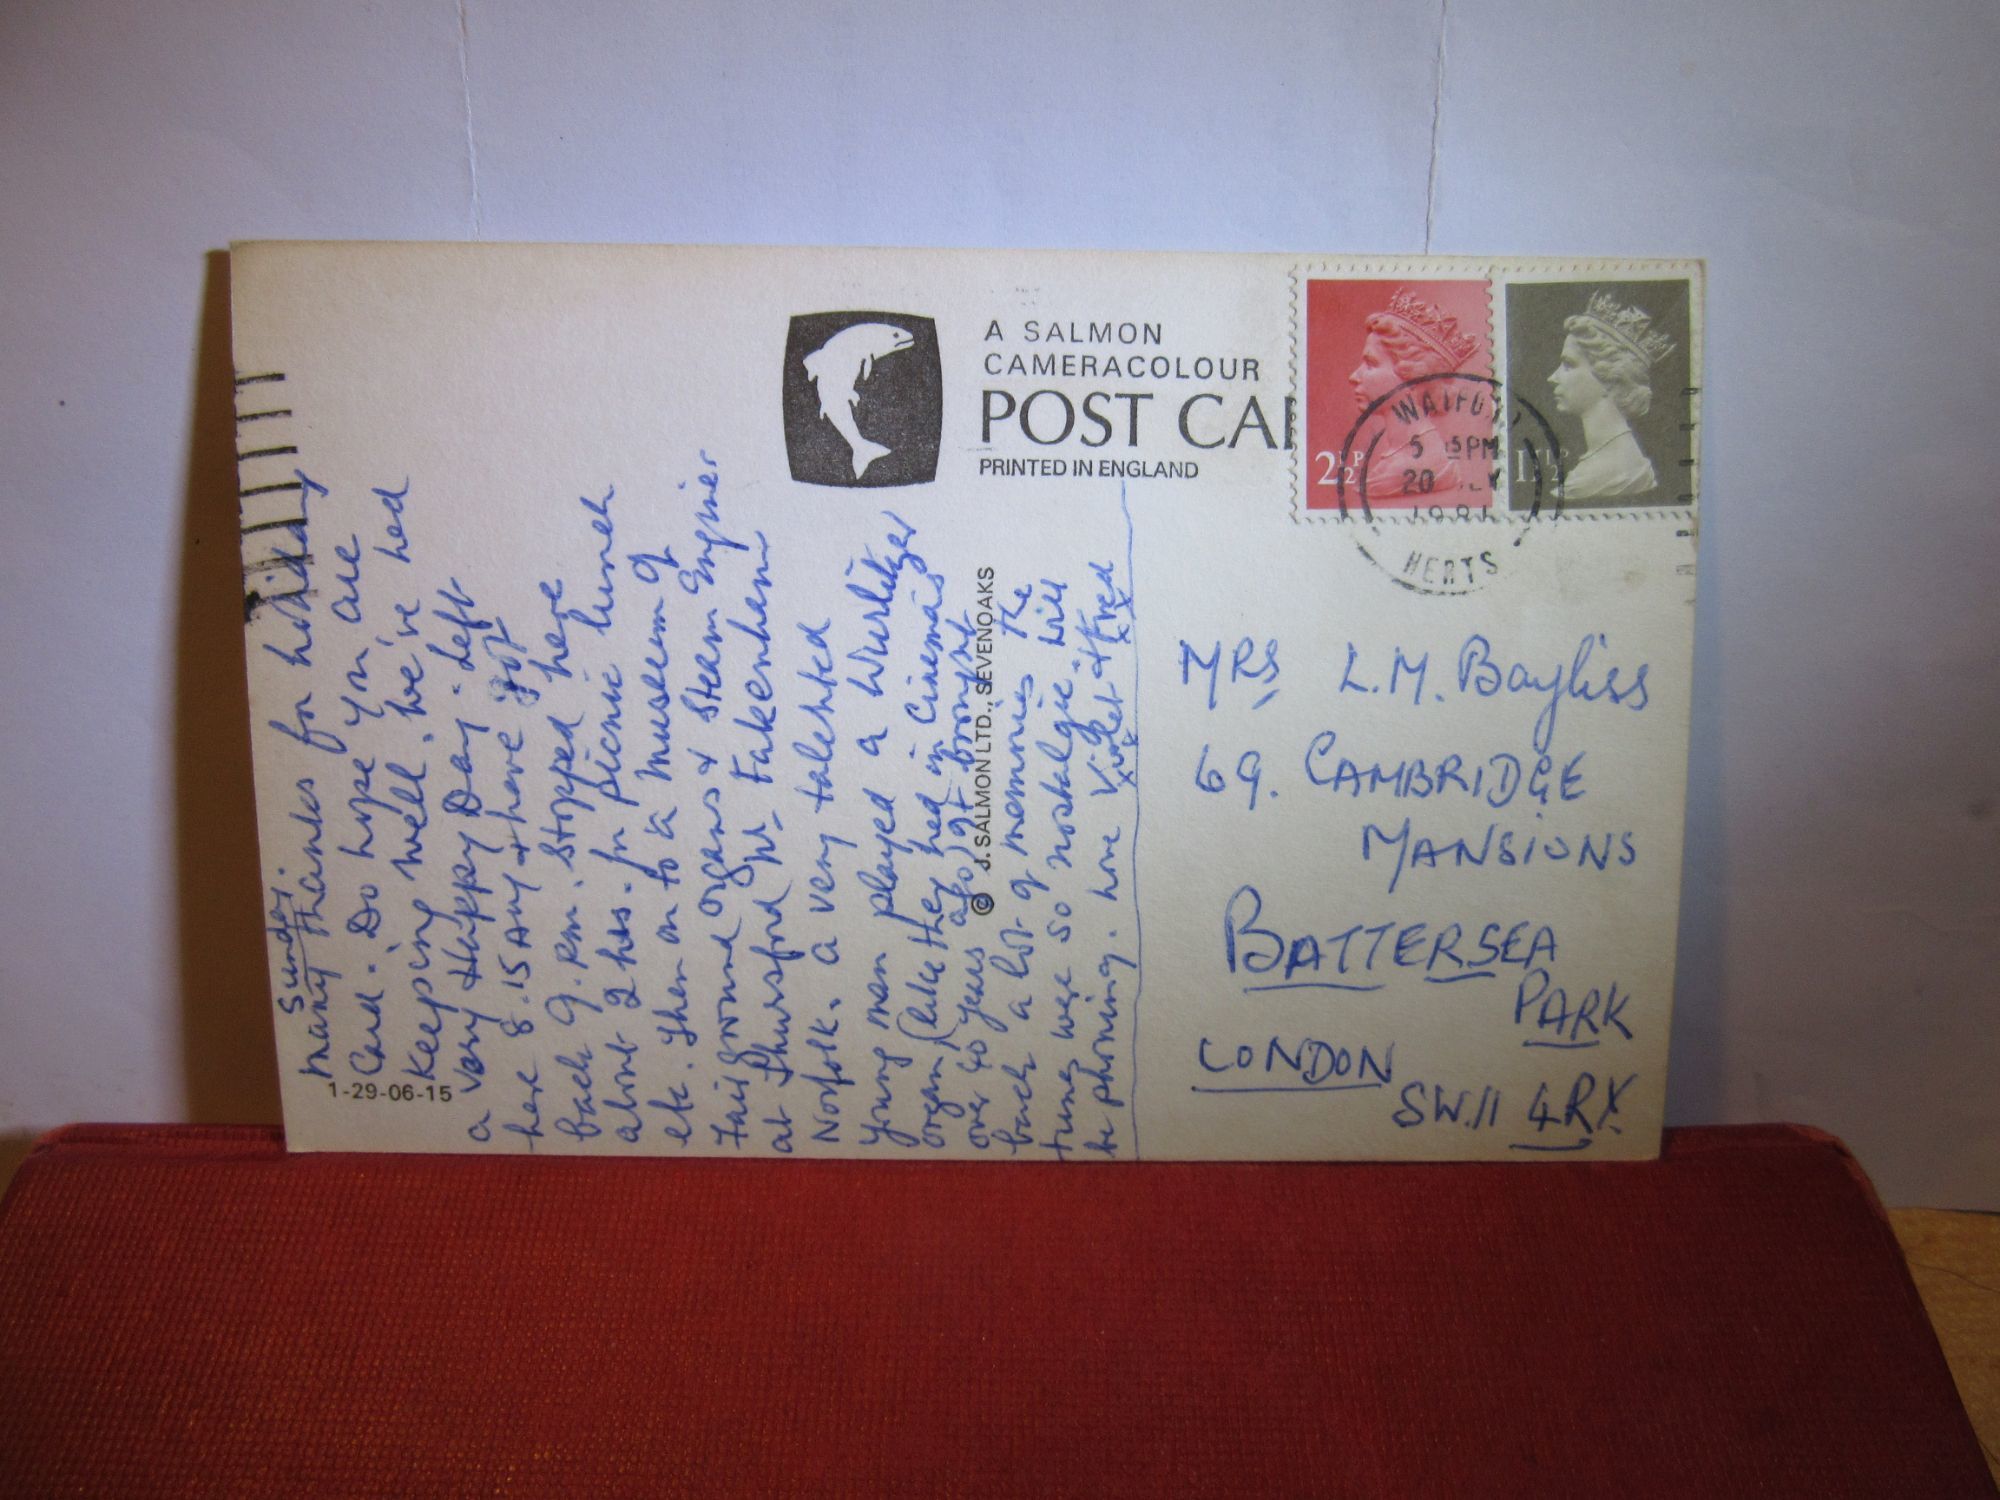 Sunday.
Many thanks for holiday
Card. Do hope you are
keeping well. We've had
a very Happy Day. Left
here 8.15 AM & have got
back 9. P.m. Stopped here
about 2 hrs. for picnic lunch
etc. Then on to a museum of
Fairground organs & Steam Engines
at Thursford Nr Fakenham
Norfolk. A very talented
young man played a Wurlitzer
organ (like they had in Cinemas
over 40 years ago) It brought
back a lot of memories The
tunes were so nostalgic. Will
be phoning. Love Violet & Fred
1-29-06-15
A SALMON
CAMERACOLOUR
POST CA
PRINTED IN ENGLAND
© J. SALMON LTD., SEVENOAKS
2½P
1½P
WATFORD
5 15PM
20
1981
HERTS
MRS L.M. Bayliss
69. CAMBRIDGE
MANSIONS
BATTERSEA
PARK
LONDON
SW.11 4RX